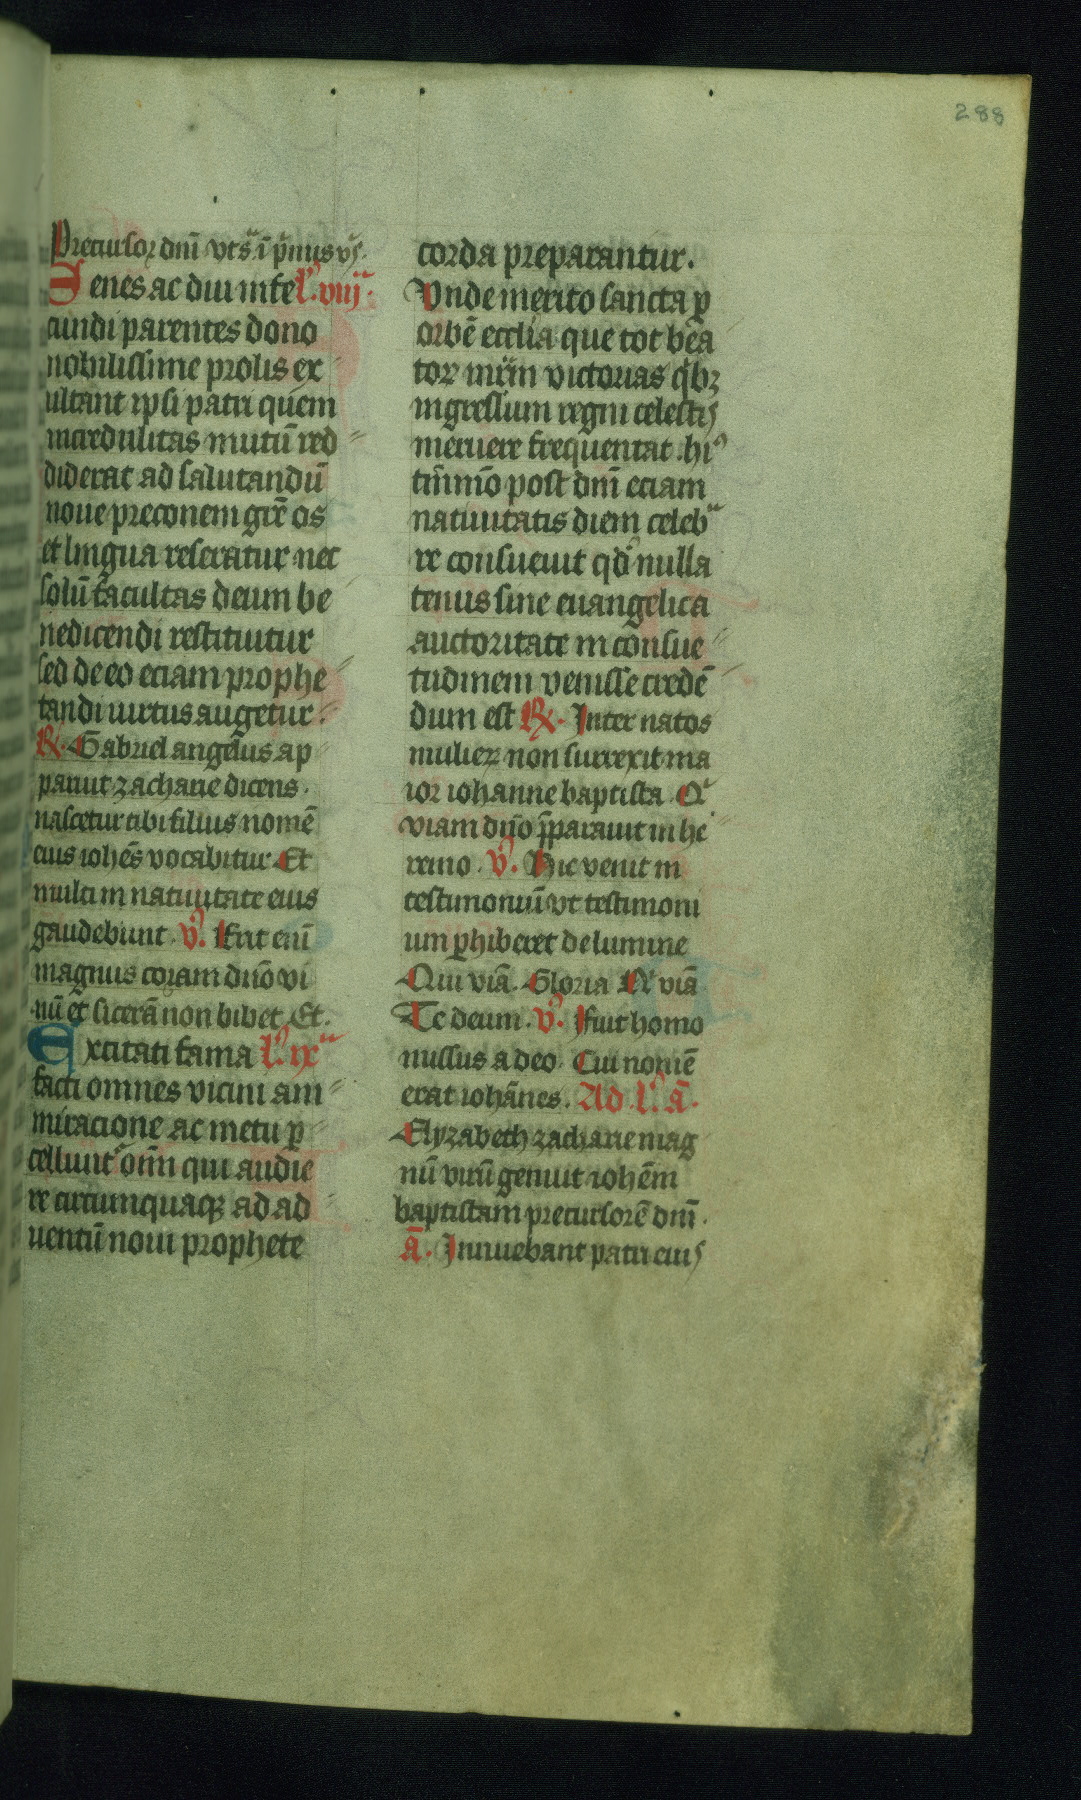 288
Precursor dnī vts̄ ī pͥmus vs̄.
Senes ac diu infe lͦ. viijͣ.
cundi parentes dono
nobilissime prolis ex
ultant ipsi patri quem
incredulitas mutū red
diderat ad salutandū
noue preconem grē os
et lingua reseratur nec
solū facultas deum be
nedicendi restituitur
sed de eo eciam prophe
tandi uirtus augetur.
R̷. Gabriel angelus ap
paruit zacharie dicens.
nascetur tibi filius nomē
eius iohēs vocabitur. Et
multi in natiuitate eius
gaudebunt. v̊. Erit enī
magnus coram dn̄o vi
nū et sicerā non bibet. Et.
Excitati fama lͦ. ixͣ
facti omnes vicini am
miracione ac metu ꝑ
cellunt̉ om̄i qui audie
re circumquaqꝫ ad ad
uentū noui prophete
corda preparantur.
Vnde merito sancta ꝑ
orbē eccl̄ia que tot bēa
toꝝ mr̄im victorias qͥbꝫ
ingressum regni celestis
meruere frequentat. hiꝰ
tm̄mō post dnī eciam
natiuitatis diem celebͣ
re consueuit qd̉ nulla
tenus sine euangelica
auctoritate in consue
tudinem venisse credē
dum est R̷. Inter natos
mulieꝝ non surrexit ma
ior iohanne baptista. Qͥ
viam dn̄o p̄parauit in he
remo. v̊. Hic venit in
testimoniū vt testimoni
um ꝑhiberet de lumine
Qui viā. Gloria Qͥ viā
Te deum. v̊. Fuit homo
missus a deo. Cui nomē
erat iohānes. Ad .lͣ. ā.
Elyzabeth zacharie mag
nū virū genuit iohēm
baptistam precursorē dnī.
ā. Innuebant patri eius